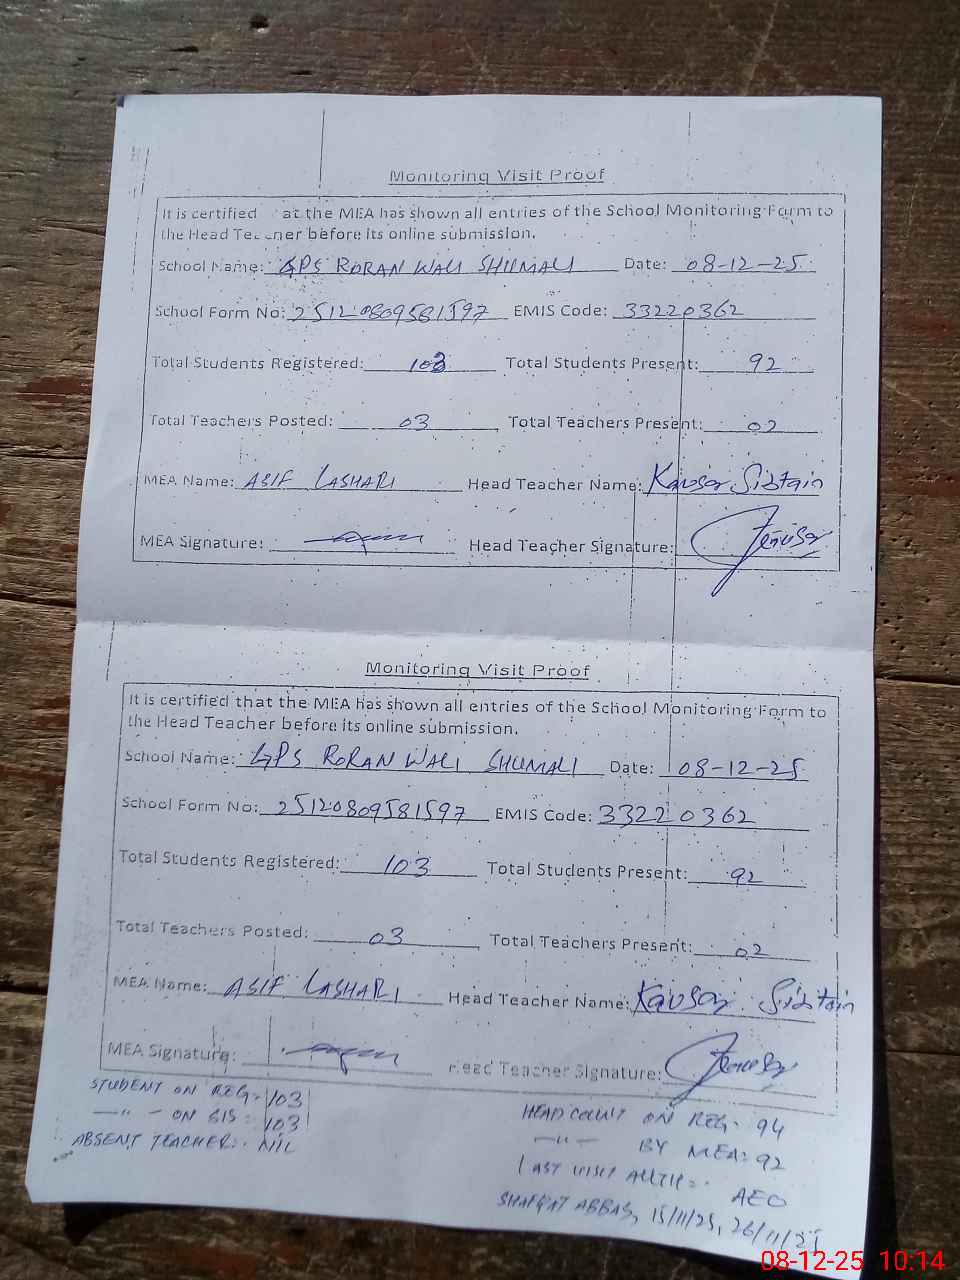 Monitoring Visit Proof
It is certified at the MEA has shown all entries of the School Monitoring Form to
the Head Teacher before its online submission.
School Name: GPS RORAN WALI SHUMALI Date: 08-12-25
School Form No: 25120809581597 EMIS Code: 33220362
Total Students Registered: 103 Total Students Present: 92
Total Teachers Posted: 03 Total Teachers Present: 02
MEA Name: ASIF LASHARI Head Teacher Name: Kausar Sibtain
MEA Signature: Head Teacher Signature: Kausar
Monitoring Visit Proof
It is certified that the MEA has shown all entries of the School Monitoring Form to
the Head Teacher before its online submission.
School Name: GPS RORAN WALI SHUMALI Date: 08-12-25
School Form No: 25120809581597 EMIS Code: 33220362
Total Students Registered: 103 Total Students Present: 92
Total Teachers Posted: 03 Total Teachers Present: 02
MEA Name: ASIF LASHARI Head Teacher Name: Kausar Sibtain
MEA Signature: Head Teacher Signature: Kausar
STUDENT ON REG: 103
—"— ON SIS: 103
ABSENT TEACHER: NIL
HEAD COUNT ON REG: 94
—"— BY MEA: 92
LAST VISIT AUTH: AEO
SHAFQAT ABBAS, 15/11/25, 26/11/25
08-12-25 10:14